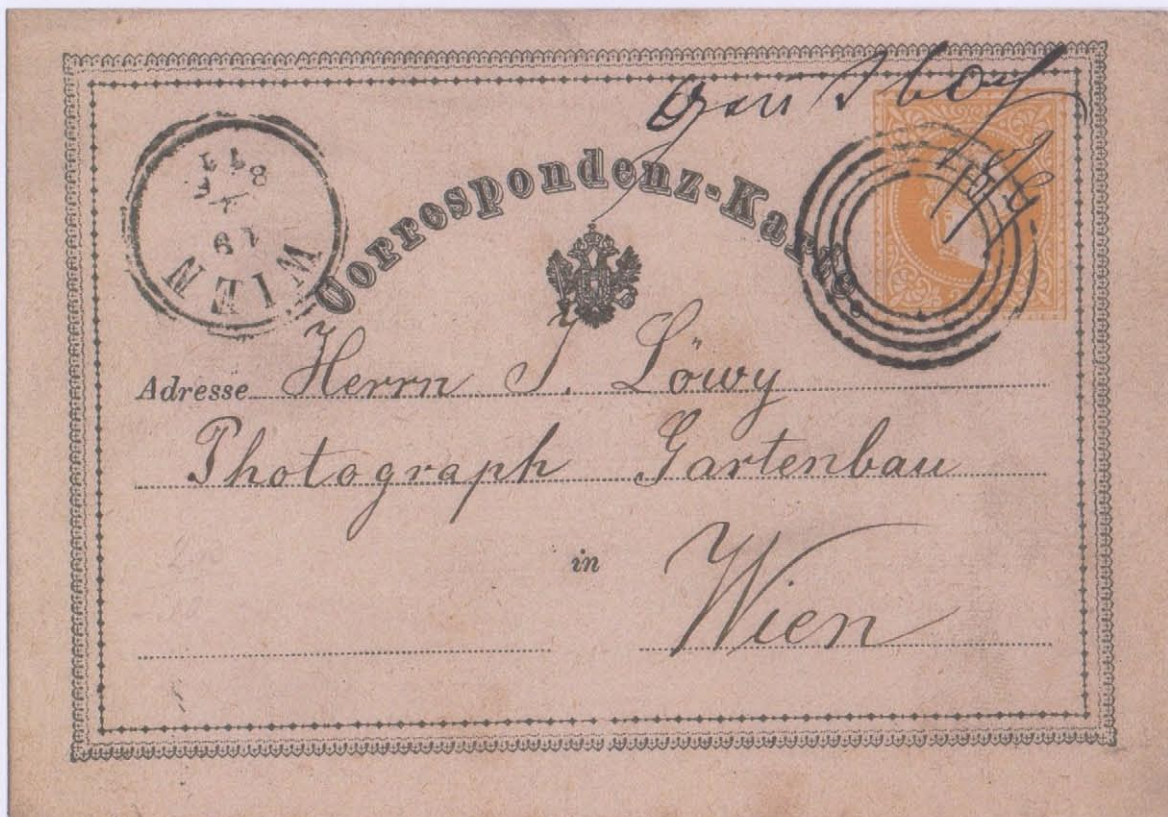 Correspondenz-Karte.
WIEN
19
Adresse Herrn J. Löwy
Photograph Gartenbau
in Wien